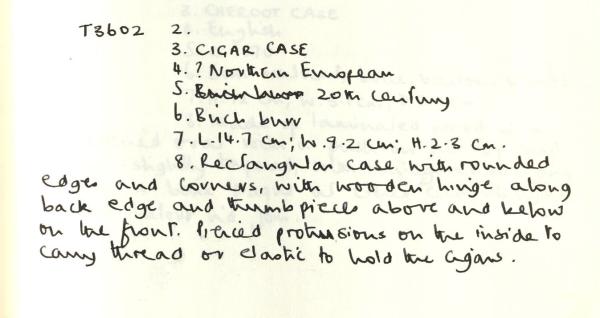 T3602 2.
3. CIGAR CASE
4. ? Northern European
5. 20th century
6. Birch burr
7. L.14.7 cm; W.9.2 cm; H.2.3 cm.
8. Rectangular case with rounded
edges and corners, with wooden hinge along
back edge and thumbpieces above and below
on the front. Pierced protrusions on the inside to
carry thread or elastic to hold the cigars.